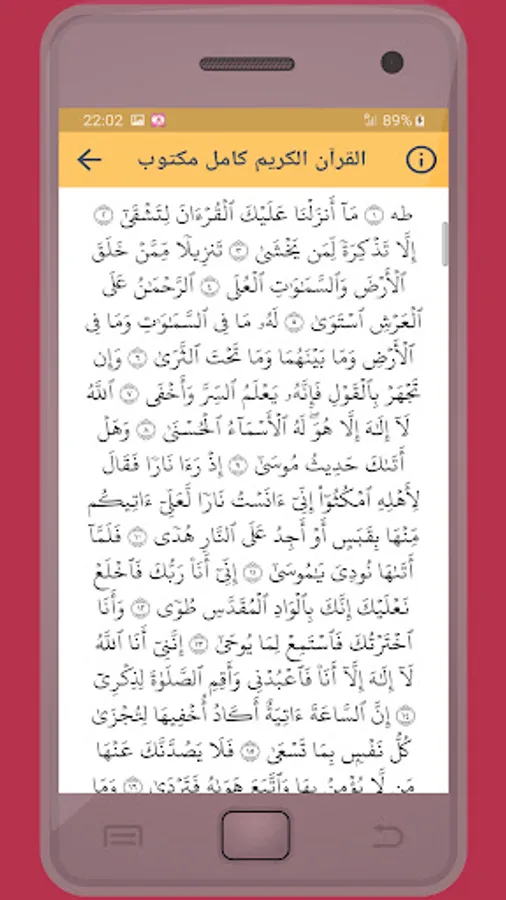 22:02 89%
القرآن الكريم كامل مكتوب
طه ۝١ مَآ أَنزَلْنَا عَلَيْكَ ٱلْقُرْءَانَ لِتَشْقَىٰٓ ۝٢
إِلَّا تَذْكِرَةً لِّمَن يَخْشَىٰ ۝٣ تَنزِيلًا مِّمَّنْ خَلَقَ
ٱلْأَرْضَ وَٱلسَّمَٰوَٰتِ ٱلْعُلَى ۝٤ ٱلرَّحْمَٰنُ عَلَى
ٱلْعَرْشِ ٱسْتَوَىٰ ۝٥ لَهُۥ مَا فِى ٱلسَّمَٰوَٰتِ وَمَا فِى
ٱلْأَرْضِ وَمَا بَيْنَهُمَا وَمَا تَحْتَ ٱلثَّرَىٰ ۝٦ وَإِن
تَجْهَرْ بِٱلْقَوْلِ فَإِنَّهُۥ يَعْلَمُ ٱلسِّرَّ وَأَخْفَى ۝٧ ٱللَّهُ
لَآ إِلَٰهَ إِلَّا هُوَ ۖ لَهُ ٱلْأَسْمَآءُ ٱلْحُسْنَىٰ ۝٨ وَهَلْ
أَتَىٰكَ حَدِيثُ مُوسَىٰٓ ۝٩ إِذْ رَءَا نَارًا فَقَالَ
لِأَهْلِهِ ٱمْكُثُوٓا۟ إِنِّىٓ ءَانَسْتُ نَارًا لَّعَلِّىٓ ءَاتِيكُم
مِّنْهَا بِقَبَسٍ أَوْ أَجِدُ عَلَى ٱلنَّارِ هُدًى ۝١٠ فَلَمَّآ
أَتَىٰهَا نُودِىَ يَٰمُوسَىٰٓ ۝١١ إِنِّىٓ أَنَا۠ رَبُّكَ فَٱخْلَعْ
نَعْلَيْكَ إِنَّكَ بِٱلْوَادِ ٱلْمُقَدَّسِ طُوًى ۝١٢ وَأَنَا
ٱخْتَرْتُكَ فَٱسْتَمِعْ لِمَا يُوحَىٰٓ ۝١٣ إِنَّنِىٓ أَنَا ٱللَّهُ
لَآ إِلَٰهَ إِلَّآ أَنَا۠ فَٱعْبُدْنِى وَأَقِمِ ٱلصَّلَوٰةَ لِذِكْرِىٓ
۝١٤ إِنَّ ٱلسَّاعَةَ ءَاتِيَةٌ أَكَادُ أُخْفِيهَا لِتُجْزَىٰ
كُلُّ نَفْسٍۭ بِمَا تَسْعَىٰ ۝١٥ فَلَا يَصُدَّنَّكَ عَنْهَا
مَن لَّا يُؤْمِنُ بِهَا وَٱتَّبَعَ هَوَىٰهُ فَتَرْدَىٰ ۝١٦ وَمَا